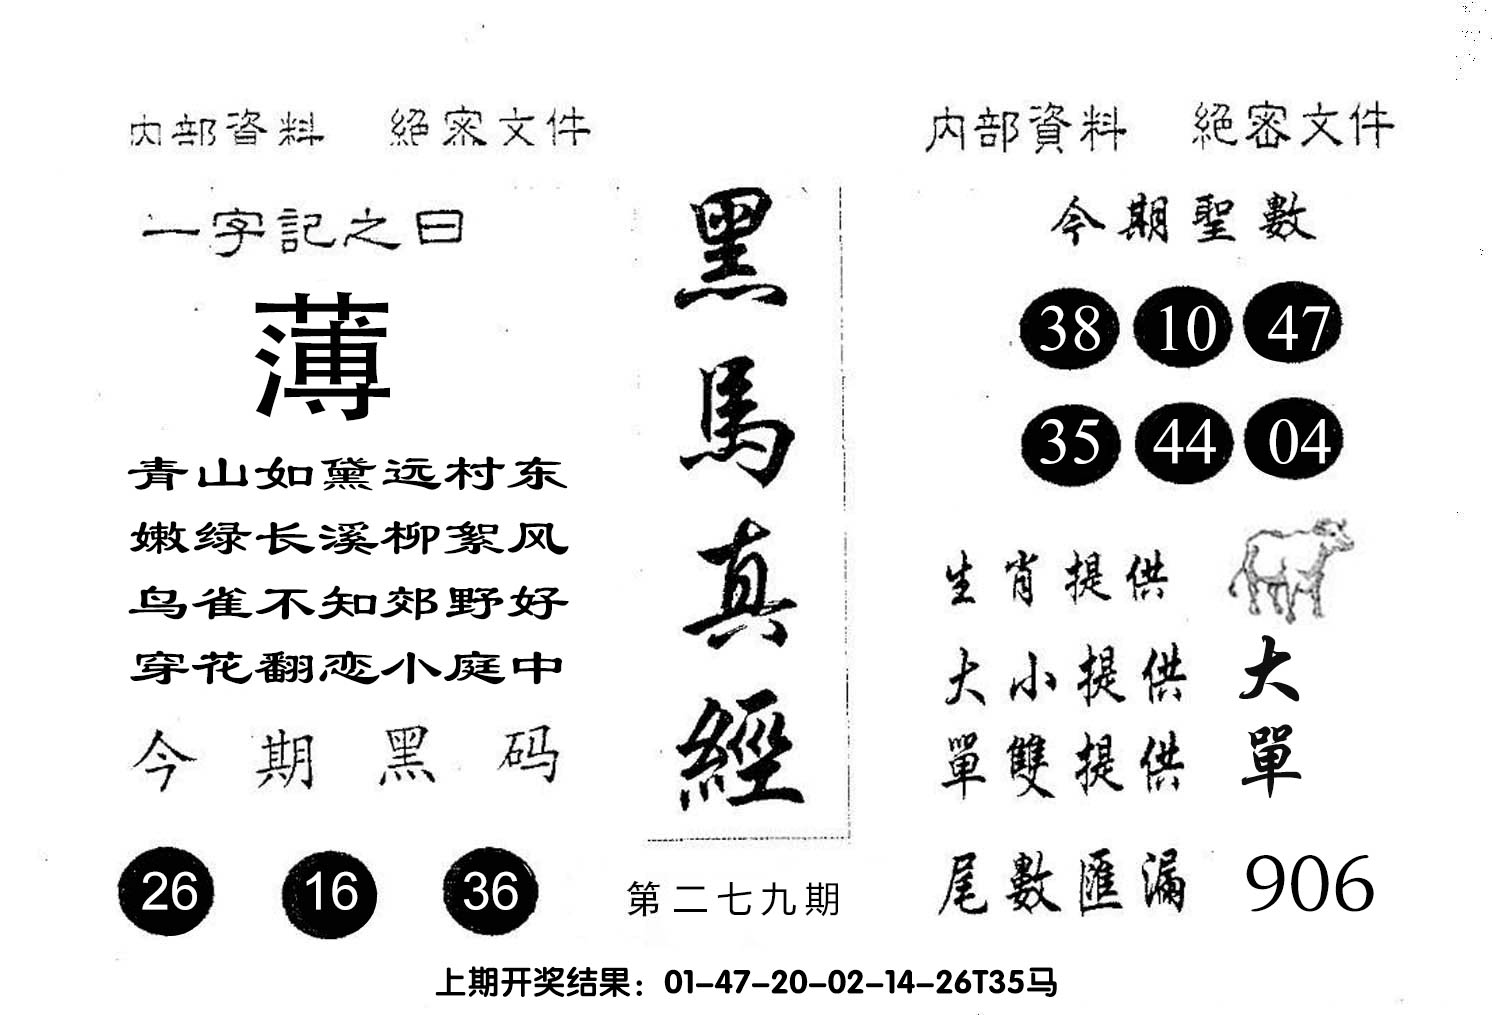 内部資料 絕密文件
一字記之曰
薄
青山如黛远村东
嫩绿长溪柳絮风
鸟雀不知郊野好
穿花翻恋小庭中
今期黑码
26 16 36
黑馬真經
第二七九期
内部資料 絕密文件
今期聖數
38 10 47
35 44 04
生肖提供
大小提供 大
單雙提供 單
尾數匯漏 906
上期开奖结果：01-47-20-02-14-26T35马